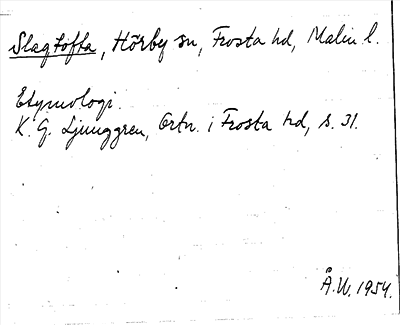 Slagtofta, Hörby sn, Frosta hd, Malm. l.
Etymologi.
K. G. Ljunggren, Ortn. i Frosta hd, s. 31.
Å.W. 1954.